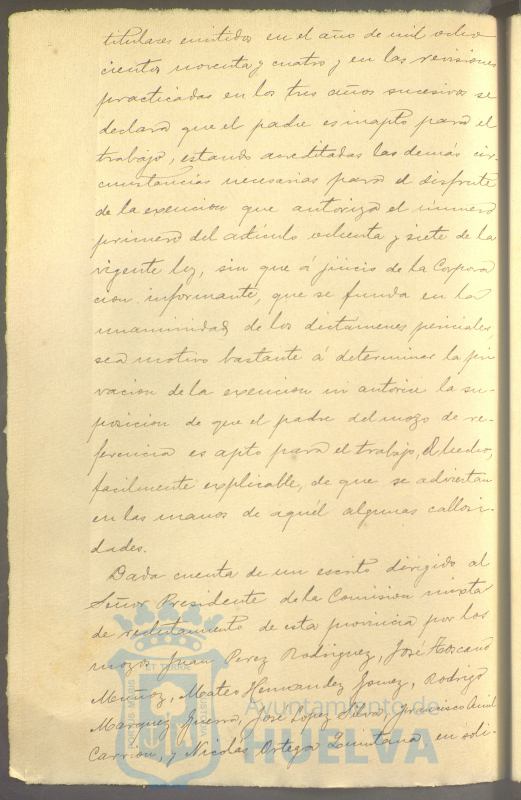 titulares emitidos en el año de mil ocho
cientos noventa y cuatro y en las revisiones
practicadas en los tres años sucesivos se
declara que el padre es inapto para el
trabajo, estando acreditadas las demás cir
cunstancias necesarias para el disfrute
de la exencion que autoriza el número
primero del artículo ochenta y siete de la
vigente ley, sin que á juicio de la Corpora
cion informante, que se funda en la
unanimidad de los dictámenes periciales,
sea motivo bastante á determinar la pri
vacion de la exencion ni autorice la su-
posicion de que el padre del mozo de re-
ferencia es apto para el trabajo, el hecho,
facilmente explicable, de que se adviertan
en las manos de aquél algunas callosi-
dades.
Dada cuenta de un escrito dirigido al
Señor Presidente de la Comision mixta
de reclutamento de esta provincia por los
mozos Juan Perez Rodriguez, José Toscano
Muñoz, Mateo Hernandez Gomez, Rodrigo
Marquez Guerra, José Lopez Silva, Francisco
Carrion, y Nicolás Ortega Quintana en soli-
PORTUS MARIS ET TERRÆ CUSTODIA
Ayuntamiento de
HUELVA